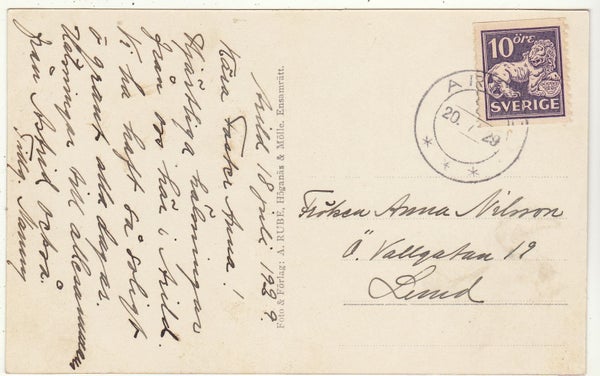 Arild 18 juli 1929.
Kära Faster Anna!
Hjärtliga hälsningar
från oss här i Arild.
Vi ha haft så soligt
o grant alla dagar.
Hälsningar till allesammans
från Astrid också.
Tillg. Nanny
Foto & Förlag: A. RUBE, Höganäs & Mölle. Ensamrätt.
10 ÖRE
SVERIGE
20. 7. 29
Fröken Anna Nilsson
Ö. Vallgatan 19
Lund